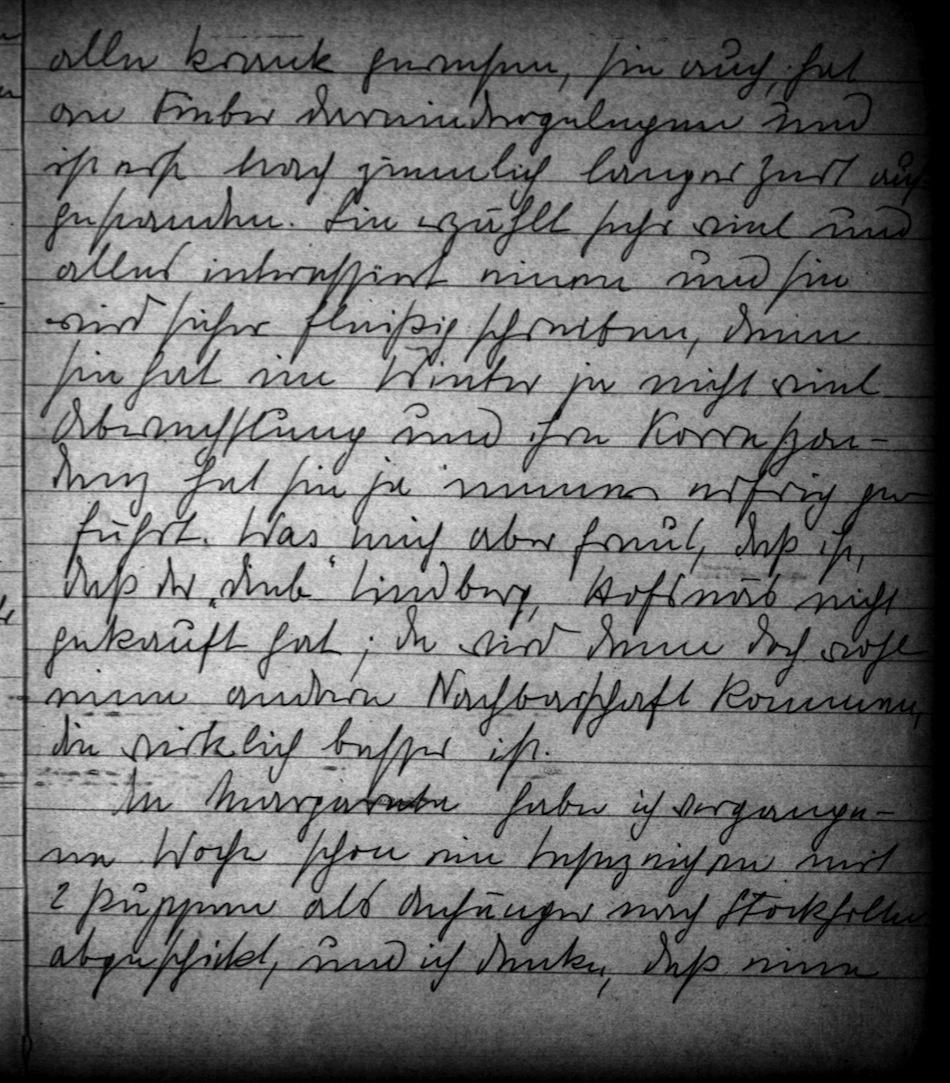 alle krank gewesen, sie auch, hat
an Fieber darniedergelegen und
ist erst nach ziemlich langer Zeit auf-
gestanden. Sie erzählt sehr viel und
alles interessiert einen und sie
wird sicher fleißig schreiben, denn
sie hat im Winter ja nicht viel
Abwechslung und ihre Korrespon-
denz hat sie ja immer eifrig ge-
führt. Was mich aber freut, daß ist,
daß der „liebe“ Lindberg, Hofsnäs nicht
gekauft hat; da wird denn doch wohl
eine andere Nachbarschaft kommen,
die wirklich besser ist.
An Margareta habe ich vergange-
ne Woche schon ein Lesezeichen mit
2 Puppen als Anhänger nach Stockholm
abgeschickt, und ich denke, daß eine